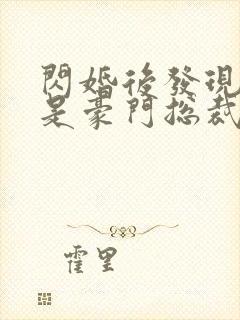 閃婚後發現
是豪門總裁
霍里